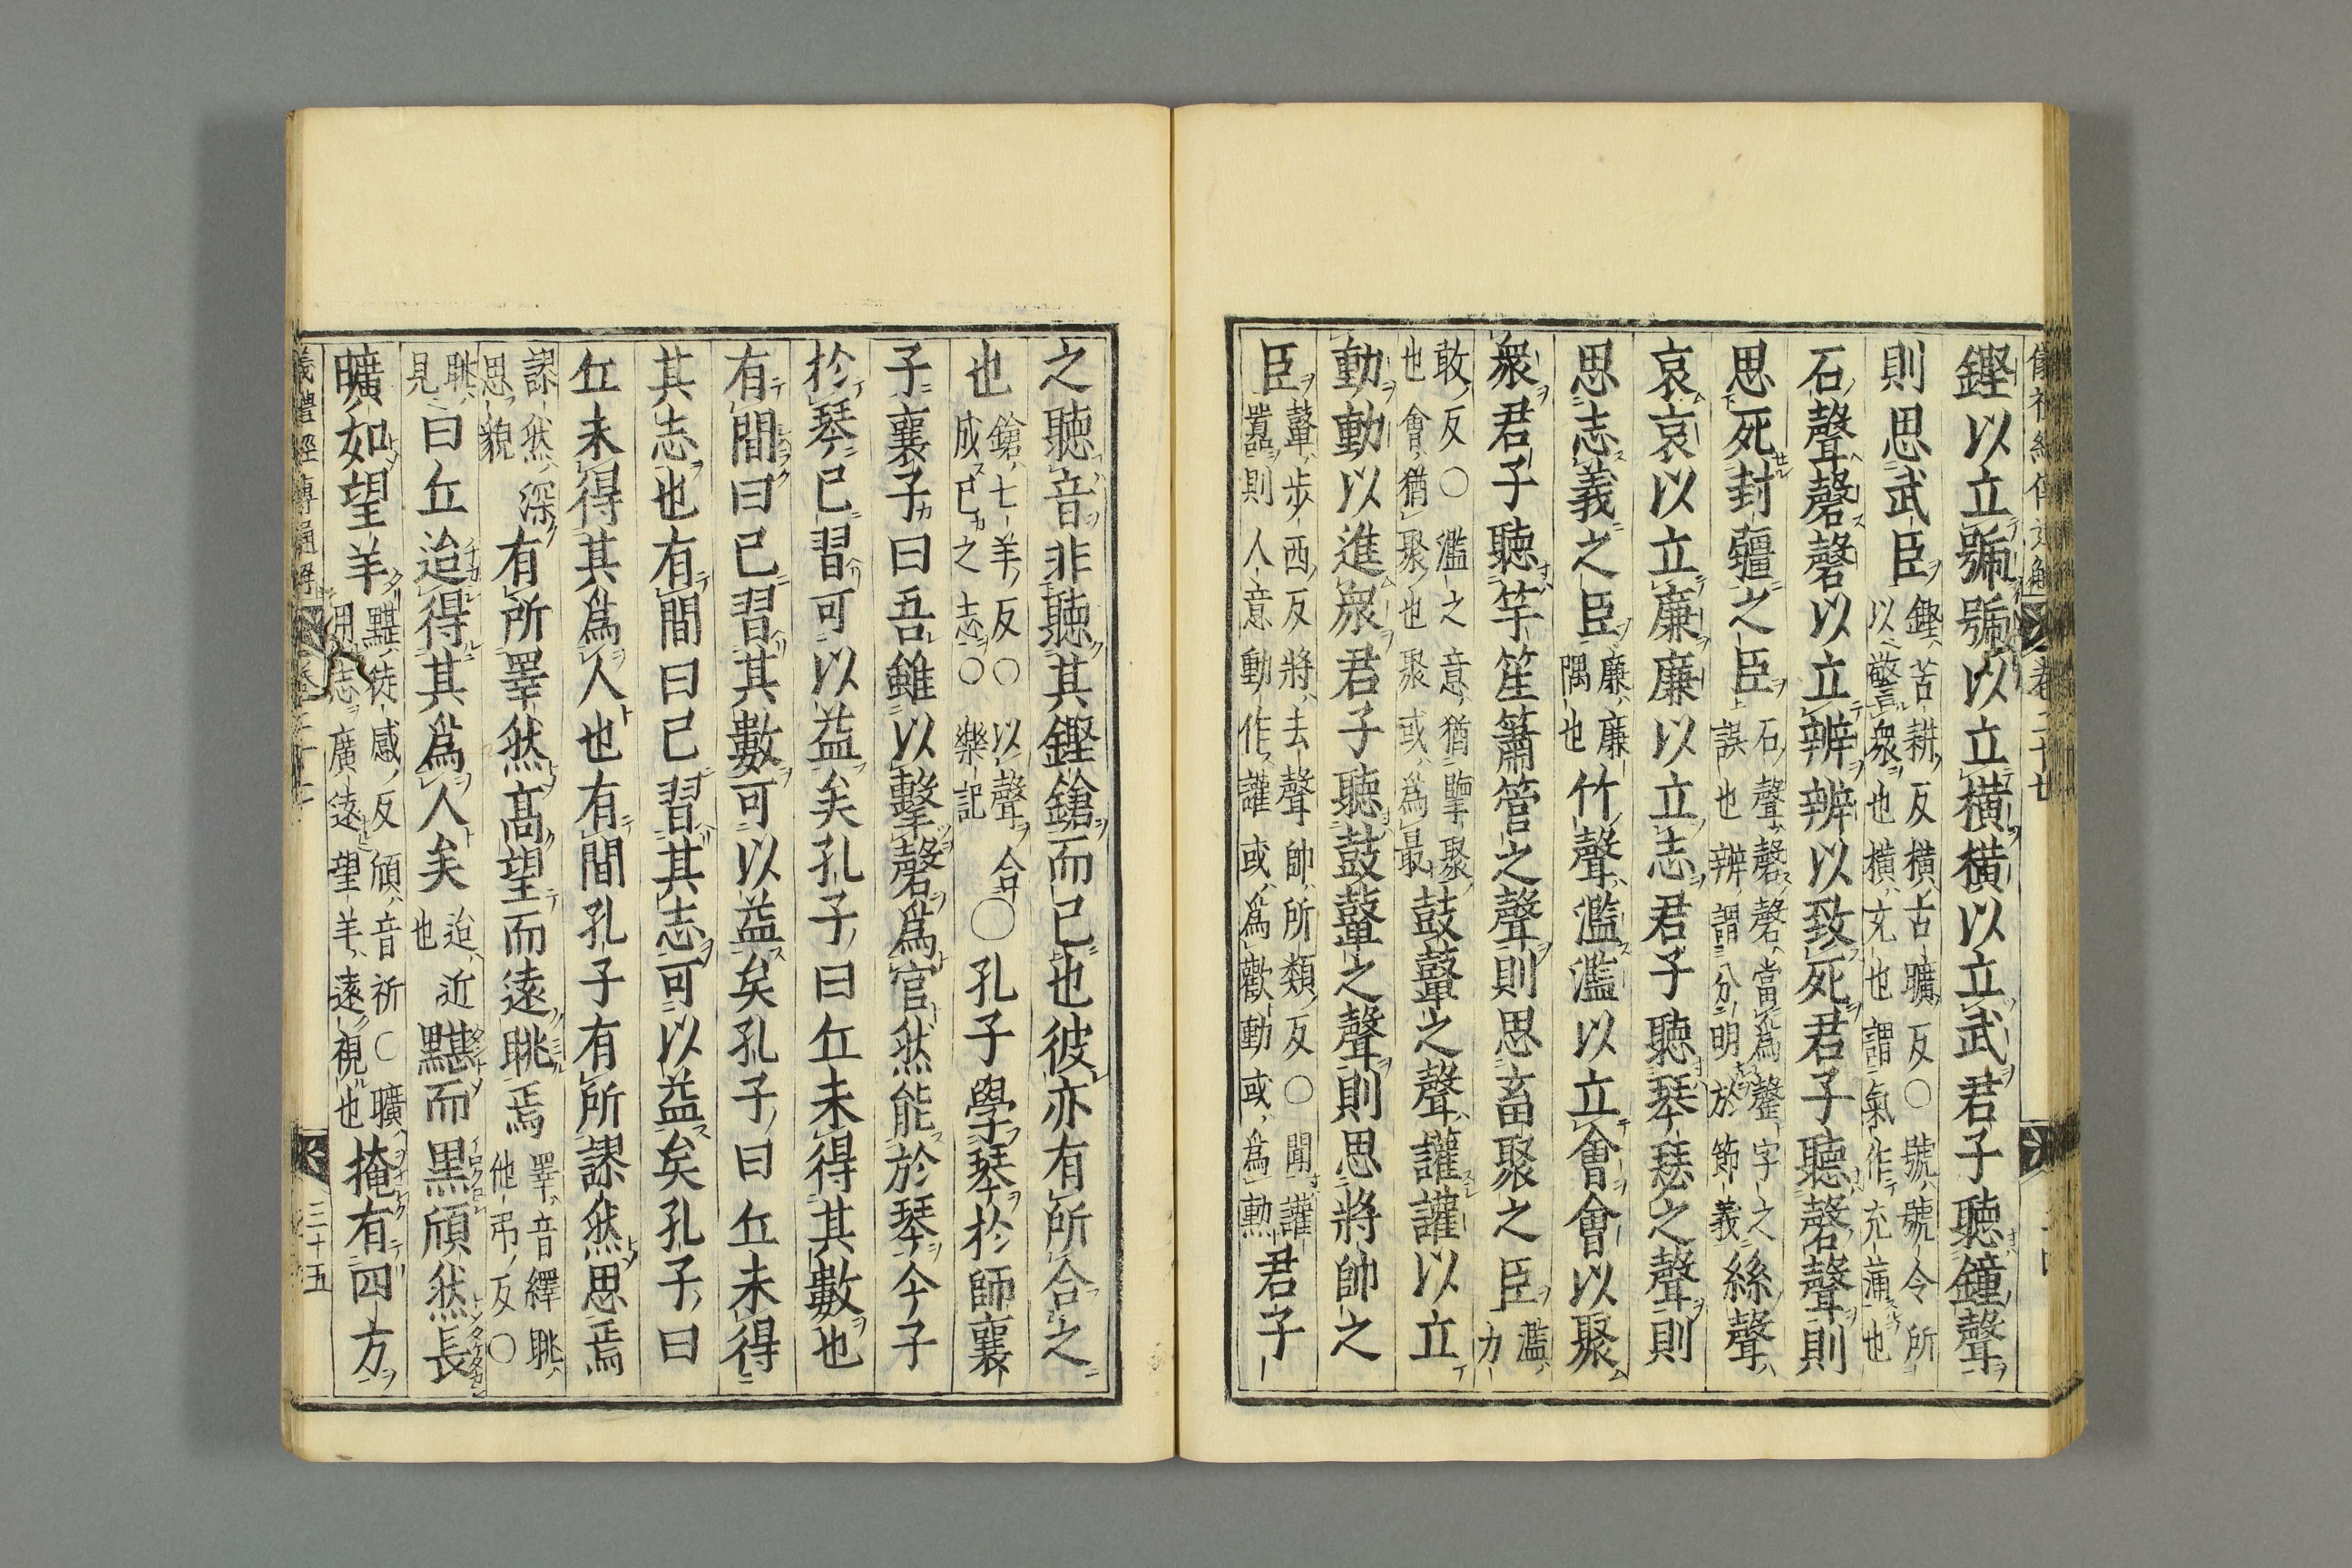 鏗以立號號以立橫橫以立武君子聽鐘聲
則思武臣鏗苦耕反橫古曠反○號號令所
以警衆也橫充也謂氣作充滿也
石聲磬磬以立辨辨以致死君子聽磬聲則
思死封疆之臣石聲磬磬當爲罄字之
誤也辨謂分明於節義絲聲
哀哀以立廉廉以立志君子聽琴瑟之聲則
思志義之臣廉廉
隅也竹聲濫濫以立會會以聚
衆君子聽竽笙簫管之聲則思畜聚之臣濫
力
敢反○濫之意猶擥聚
也會猶聚也聚或爲最鼓鼙之聲讙讙以立
動動以進衆君子聽鼓鼙之聲則思將帥之
臣鼙步西反將去聲帥所類反○聞讙
囂則人意動作讙或爲歡動或爲勳君子
之聽音非聽其鏗鎗而已也彼亦有所合之
也鎗七羊反○以聲合
成已之志○樂記○孔子學琴於師襄
子襄子曰吾雖以擊磬爲官然能於琴今子
於琴已習可以益矣孔子曰丘未得其數也
有間曰已習其數可以益矣孔子曰丘未得
其志也有間曰已習其志可以益矣孔子曰
丘未得其爲人也有間孔子有所謬然思焉
謬然深
思貌有所睪然高望而遠眺焉睪音繹眺
他弔反○
眺
見曰丘迨得其爲人矣迨近
也黮而黑頎然長
曠如望羊黮徒感反頎音祈○曠
用志廣遠望羊遠視也掩有四方
三十五